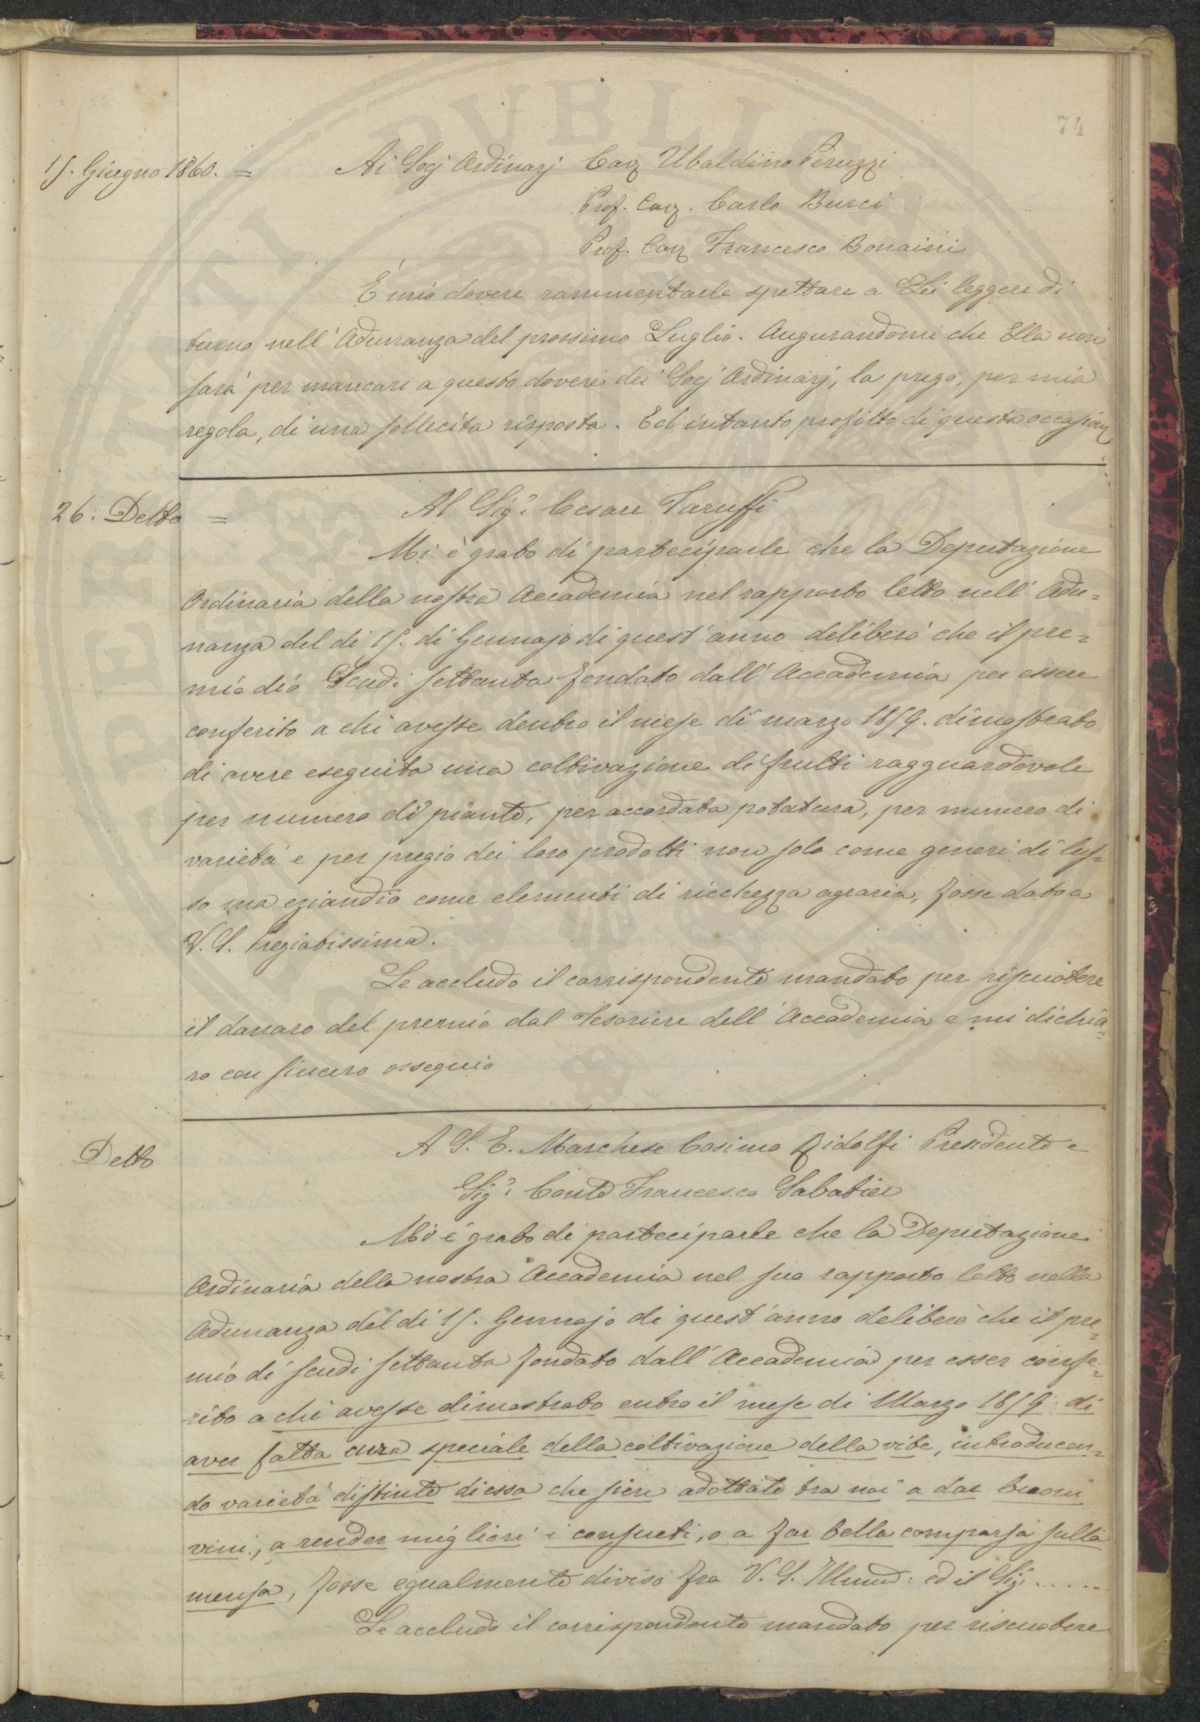 74
15. Giugno 1860. = Ai Socj Ordinarj Cav. Ubaldino Peruzzi
Prof. Cav. Carlo Burci
Prof. Cav. Francesco Bonaini
È mio dovere rammentarle spettare a Lei leggere di
turno nell' Adunanza del prossimo Luglio. Augurandomi che Ella non
sarà per mancare a questo dovere dei Socj Ordinarj, la prego, per mia
regola, di una sollecita risposta. Ed intanto profitto di questa occasion
26. Detto = Al Sig.r Cesare Taruffi
Mi è grato di parteciparle che la Deputazione
Ordinaria della nostra Accademia nel rapporto letto nell' Adu=
nanza del dì 15. di Gennajo di quest' anno deliberò che il pre=
mio di Scudi settanta fondato dall' Accademia per essere
conferito a chi avesse dentro il mese di marzo 1859. dimostrato
di avere eseguita una coltivazione di frutti ragguardevole
per numero di piante, per accordata potatura, per numero di
varietà e per pregio dei loro prodotti non solo come generi di lus=
so ma eziandio come elementi di ricchezza agraria, fosse dato a
V. S. Pregiatissima.
Le accludo il corrispondente mandato per riscuotere
il danaro del premio dal Tesoriere dell' Accademia e mi dichia=
ro con sincero ossequio
Detto A S. E. Marchese Cosimo Ridolfi Presidente e
Sig.r Conte Francesco Sabatier
Mi è grato di parteciparle che la Deputazione
Ordinaria della nostra Accademia nel suo rapporto letto nella
Adunanza del dì 15. Gennajo di quest' anno deliberò che il pre=
mio di scudi settanta fondato dall' Accademia per esser confe=
rito a chi avesse dimostrato entro il mese di Marzo 1859: di
aver fatta cura speciale della coltivazione della vite, introducen=
do varietà distinte di essa che sieno adottate tra noi a dar buoni
vini, a render migliori i consueti, o a far bella comparsa sulla
mensa, fosse egualmente diviso fra V. S. Illma: ed il Sig.r......
Le accludo il corrispondente mandato per riscuotere